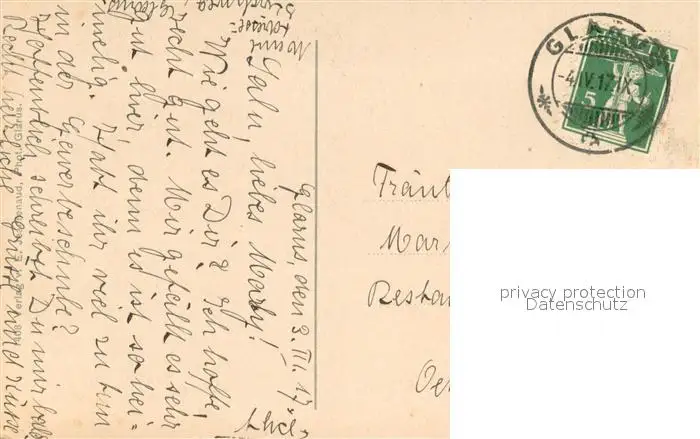 Glarus, den 3. III. 17
Salu, liebes Mary!
Wie geht es Dir? Ich hoffe,
recht gut. Mir gefällt es sehr
gut hier, denn es ist so hei-
melig. Habt ihr viel zu tun
in der Gewerbestube?
Hoffentlich schreibst Du mir bald.
Recht herzliche Grüsse und Küsse
Verlag v. Phot. Glarus.
GLARUS
-4.IV.17.IX-
5
Fräul
Mar
Restau
Oe
privacy protection
Datenschutz